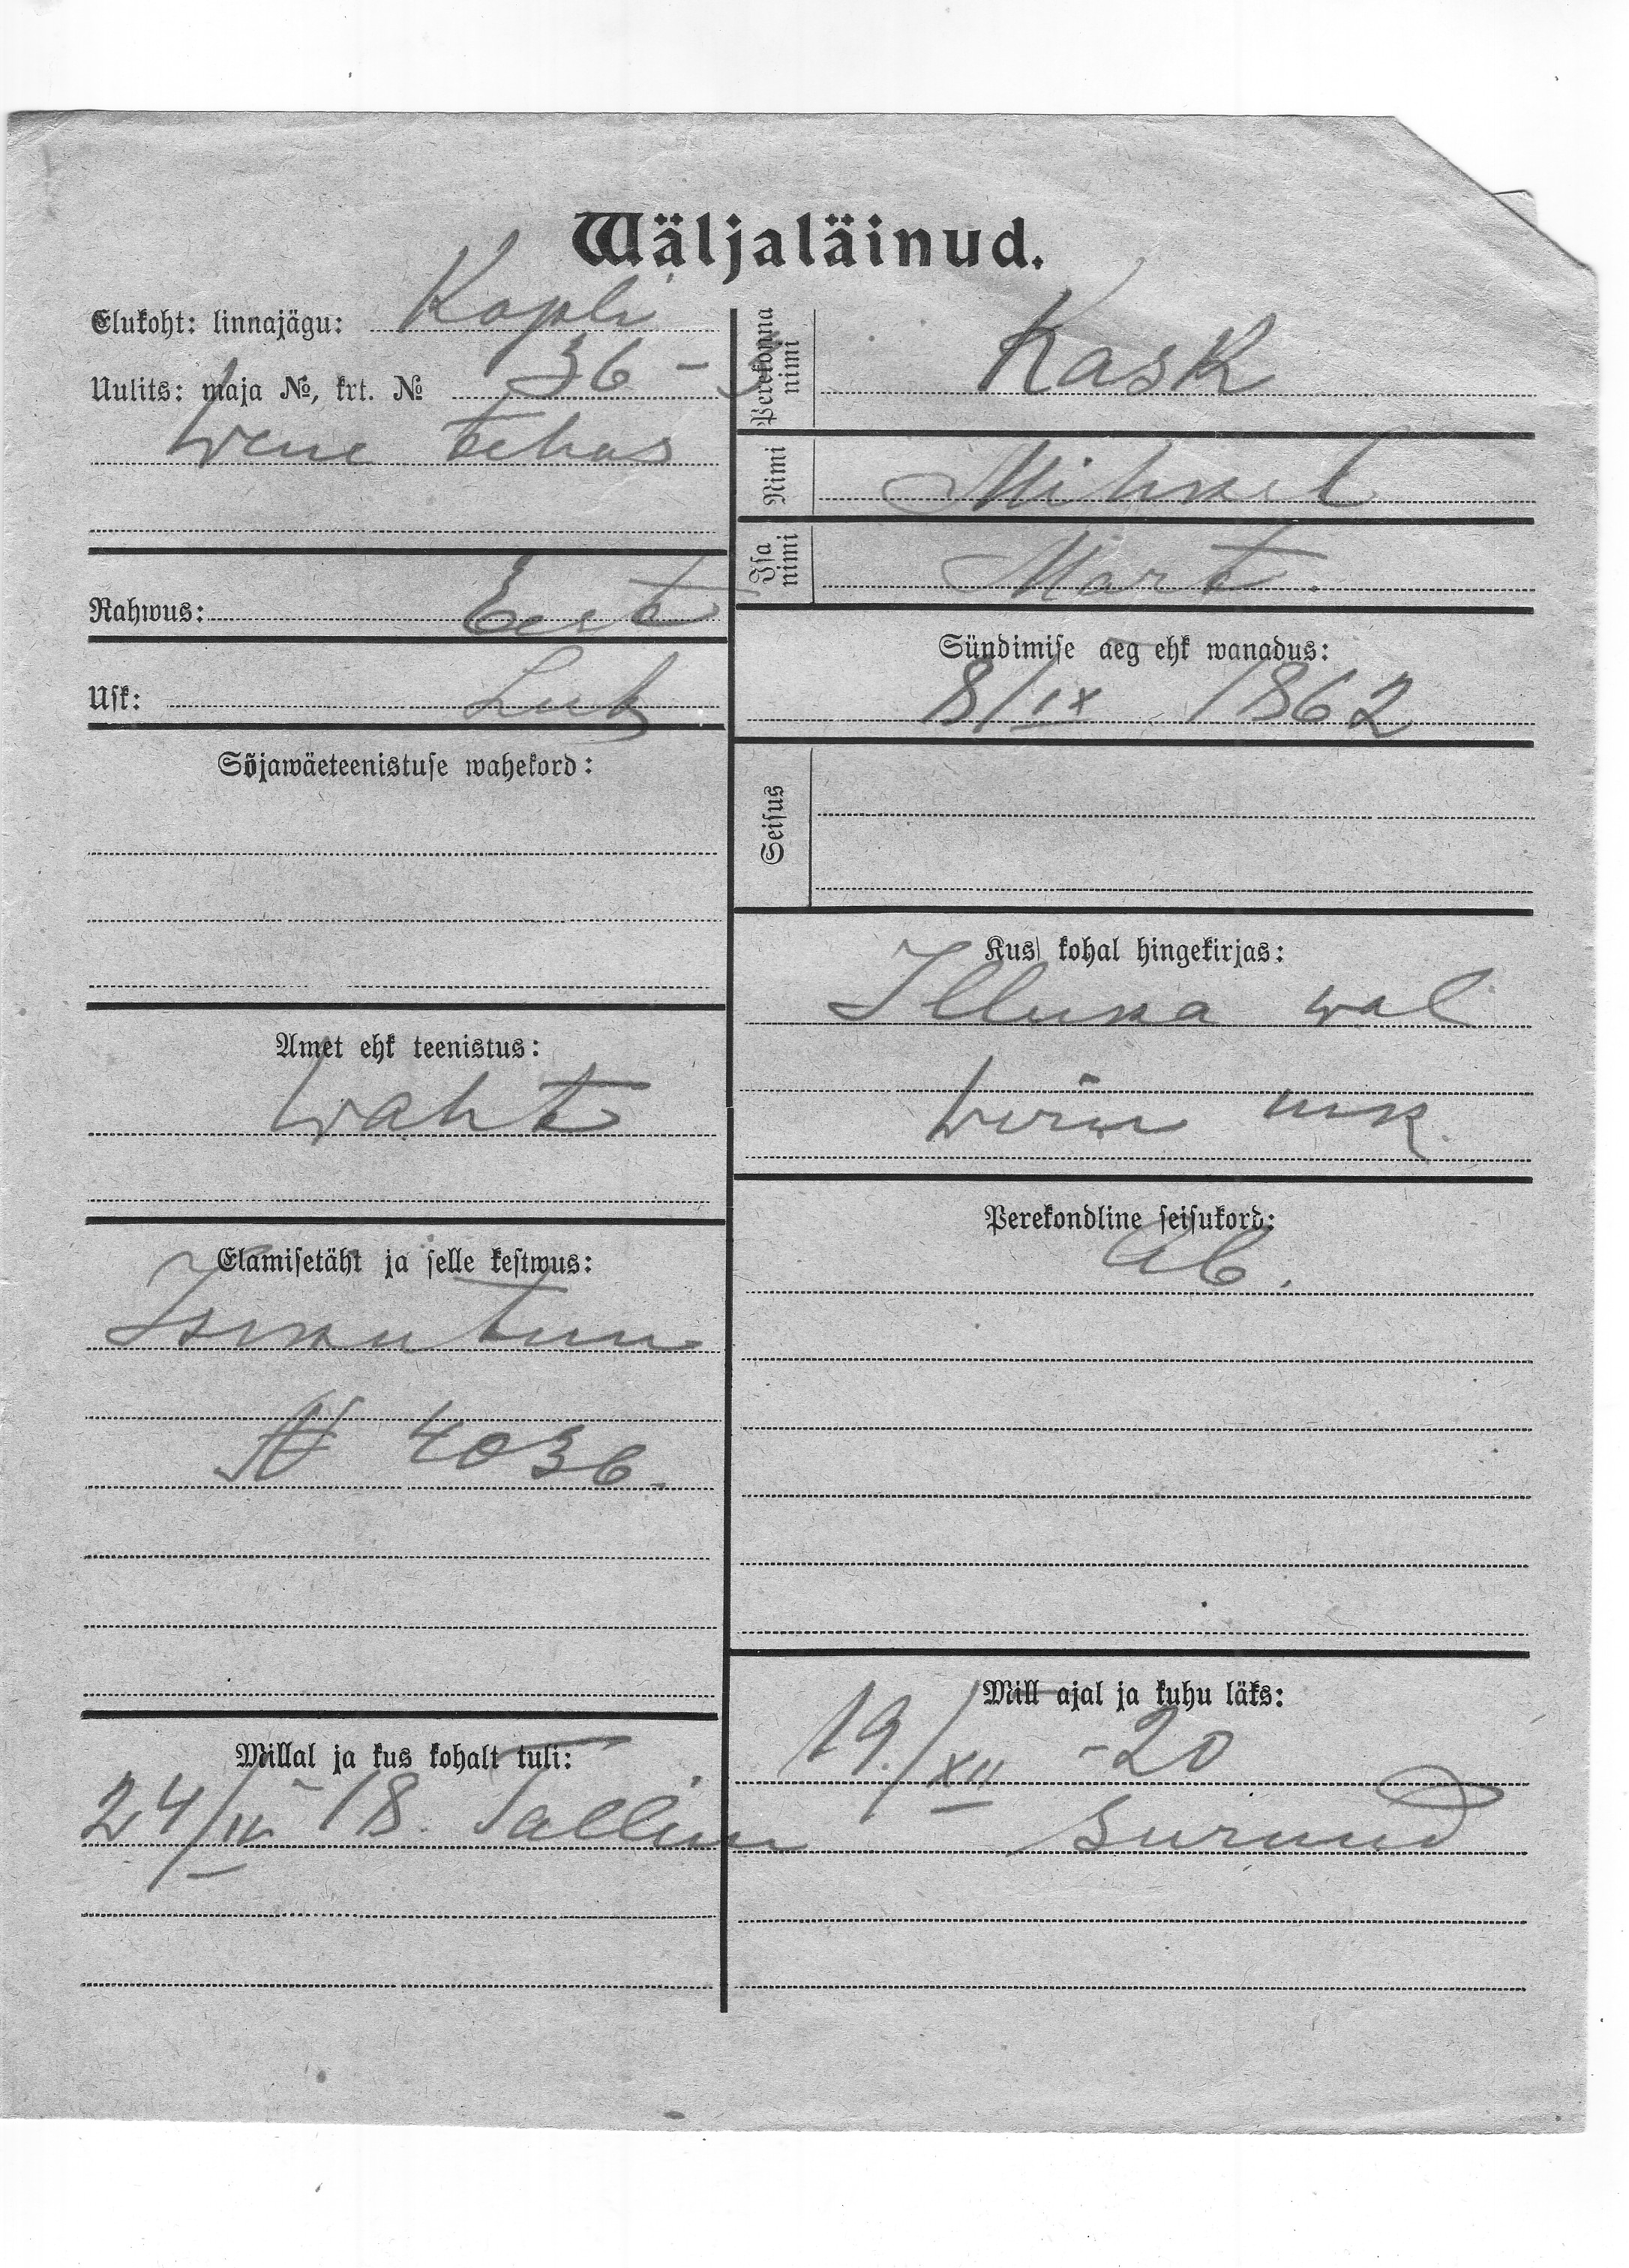 Wäljaläinud.
Elukoht: linnajägu: Kopli
Uulits: maja №, krt. № 36 - 3
Wene Tehas
Rahwus: Eest
Usk: Lut
Sõjawäeteenistuse wahekord:
Amet ehk teenistus:
Waht
Elamisetäht ja selle kestwus:
Isikutun
№ 4036.
Millal ja kus kohalt tuli:
24/IV - 18. Tallinn
Perekonna nimi Kask
Nimi Mihkel
Isa nimi Mart.
Sündimise aeg ehk wanadus:
8/IX 1862
Seisus
Kus kohal hingekirjas:
Illuka wal
Wiru mk.
Perekondline seisukord:
Ab.
Mill ajal ja kuhu läks:
19./XII -20
Surnud